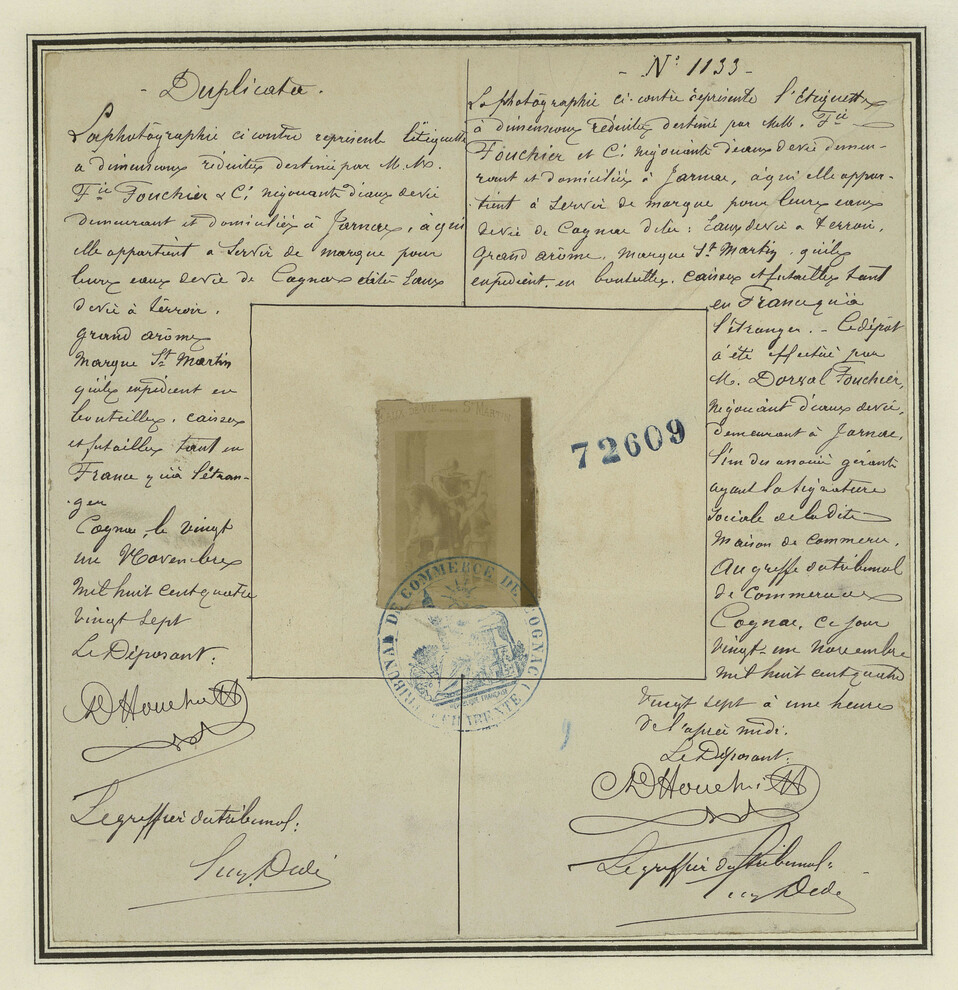 - Duplicata.
La photographie ci contre représente l'étiquette
a dimensions réduites destiné par M.M.
F^ix Fouchier & C^ie négociants d'eaux de vie
demeurant et domiciliés à Jarnac, à qui
elle appartient a Servir de marque pour
leurs eaux de vie de Cognac dites Eaux
de vie à terroir.
grand arôme
Marque S^t Martin
qu'ils expédient en
bouteilles, caisses
et futailles tant en
France qu'à l'étran-
ger
Cognac, le vingt
un Novembre
mil huit cent quatre
vingt sept
Le Déposant:
Le greffier du tribunal:
- N° 1133 -
La photographie ci-contre représente l'Etiquette
à dimensions réduites destiné par M.M. F^ix
Fouchier et C^ie négociants d'eaux de vie demeu-
rant et domiciliés à Jarnac, à qui elle appar-
tient à Servir de marque pour leurs eaux
de vie de Cognac dites: Eaux de vie à terroir,
Grand arôme, marque S^t Martin, qu'ils
expédient en bouteilles, caisses et futailles tant
en France qu'à
l'étranger. - Le dépôt
a été effectué par
M. Dorval Fouchier,
négociant d'eaux de vie,
demeurant à Jarnac,
l'un des associés gérants
ayant la signature
sociale de la dite
Maison de commerce,
Au greffe du tribunal
de Commerce de
Cognac, ce jour
vingt-un novembre
mil huit cent quatre
vingt sept à une heure
de l'après midi.
Le Déposant:
Le greffier du tribunal:
EAUX DE VIE S^T MARTIN
72609
TRIBUNAL DE COMMERCE DE COGNAC (CHARENTE)
RÉPUBLIQUE FRANÇAISE